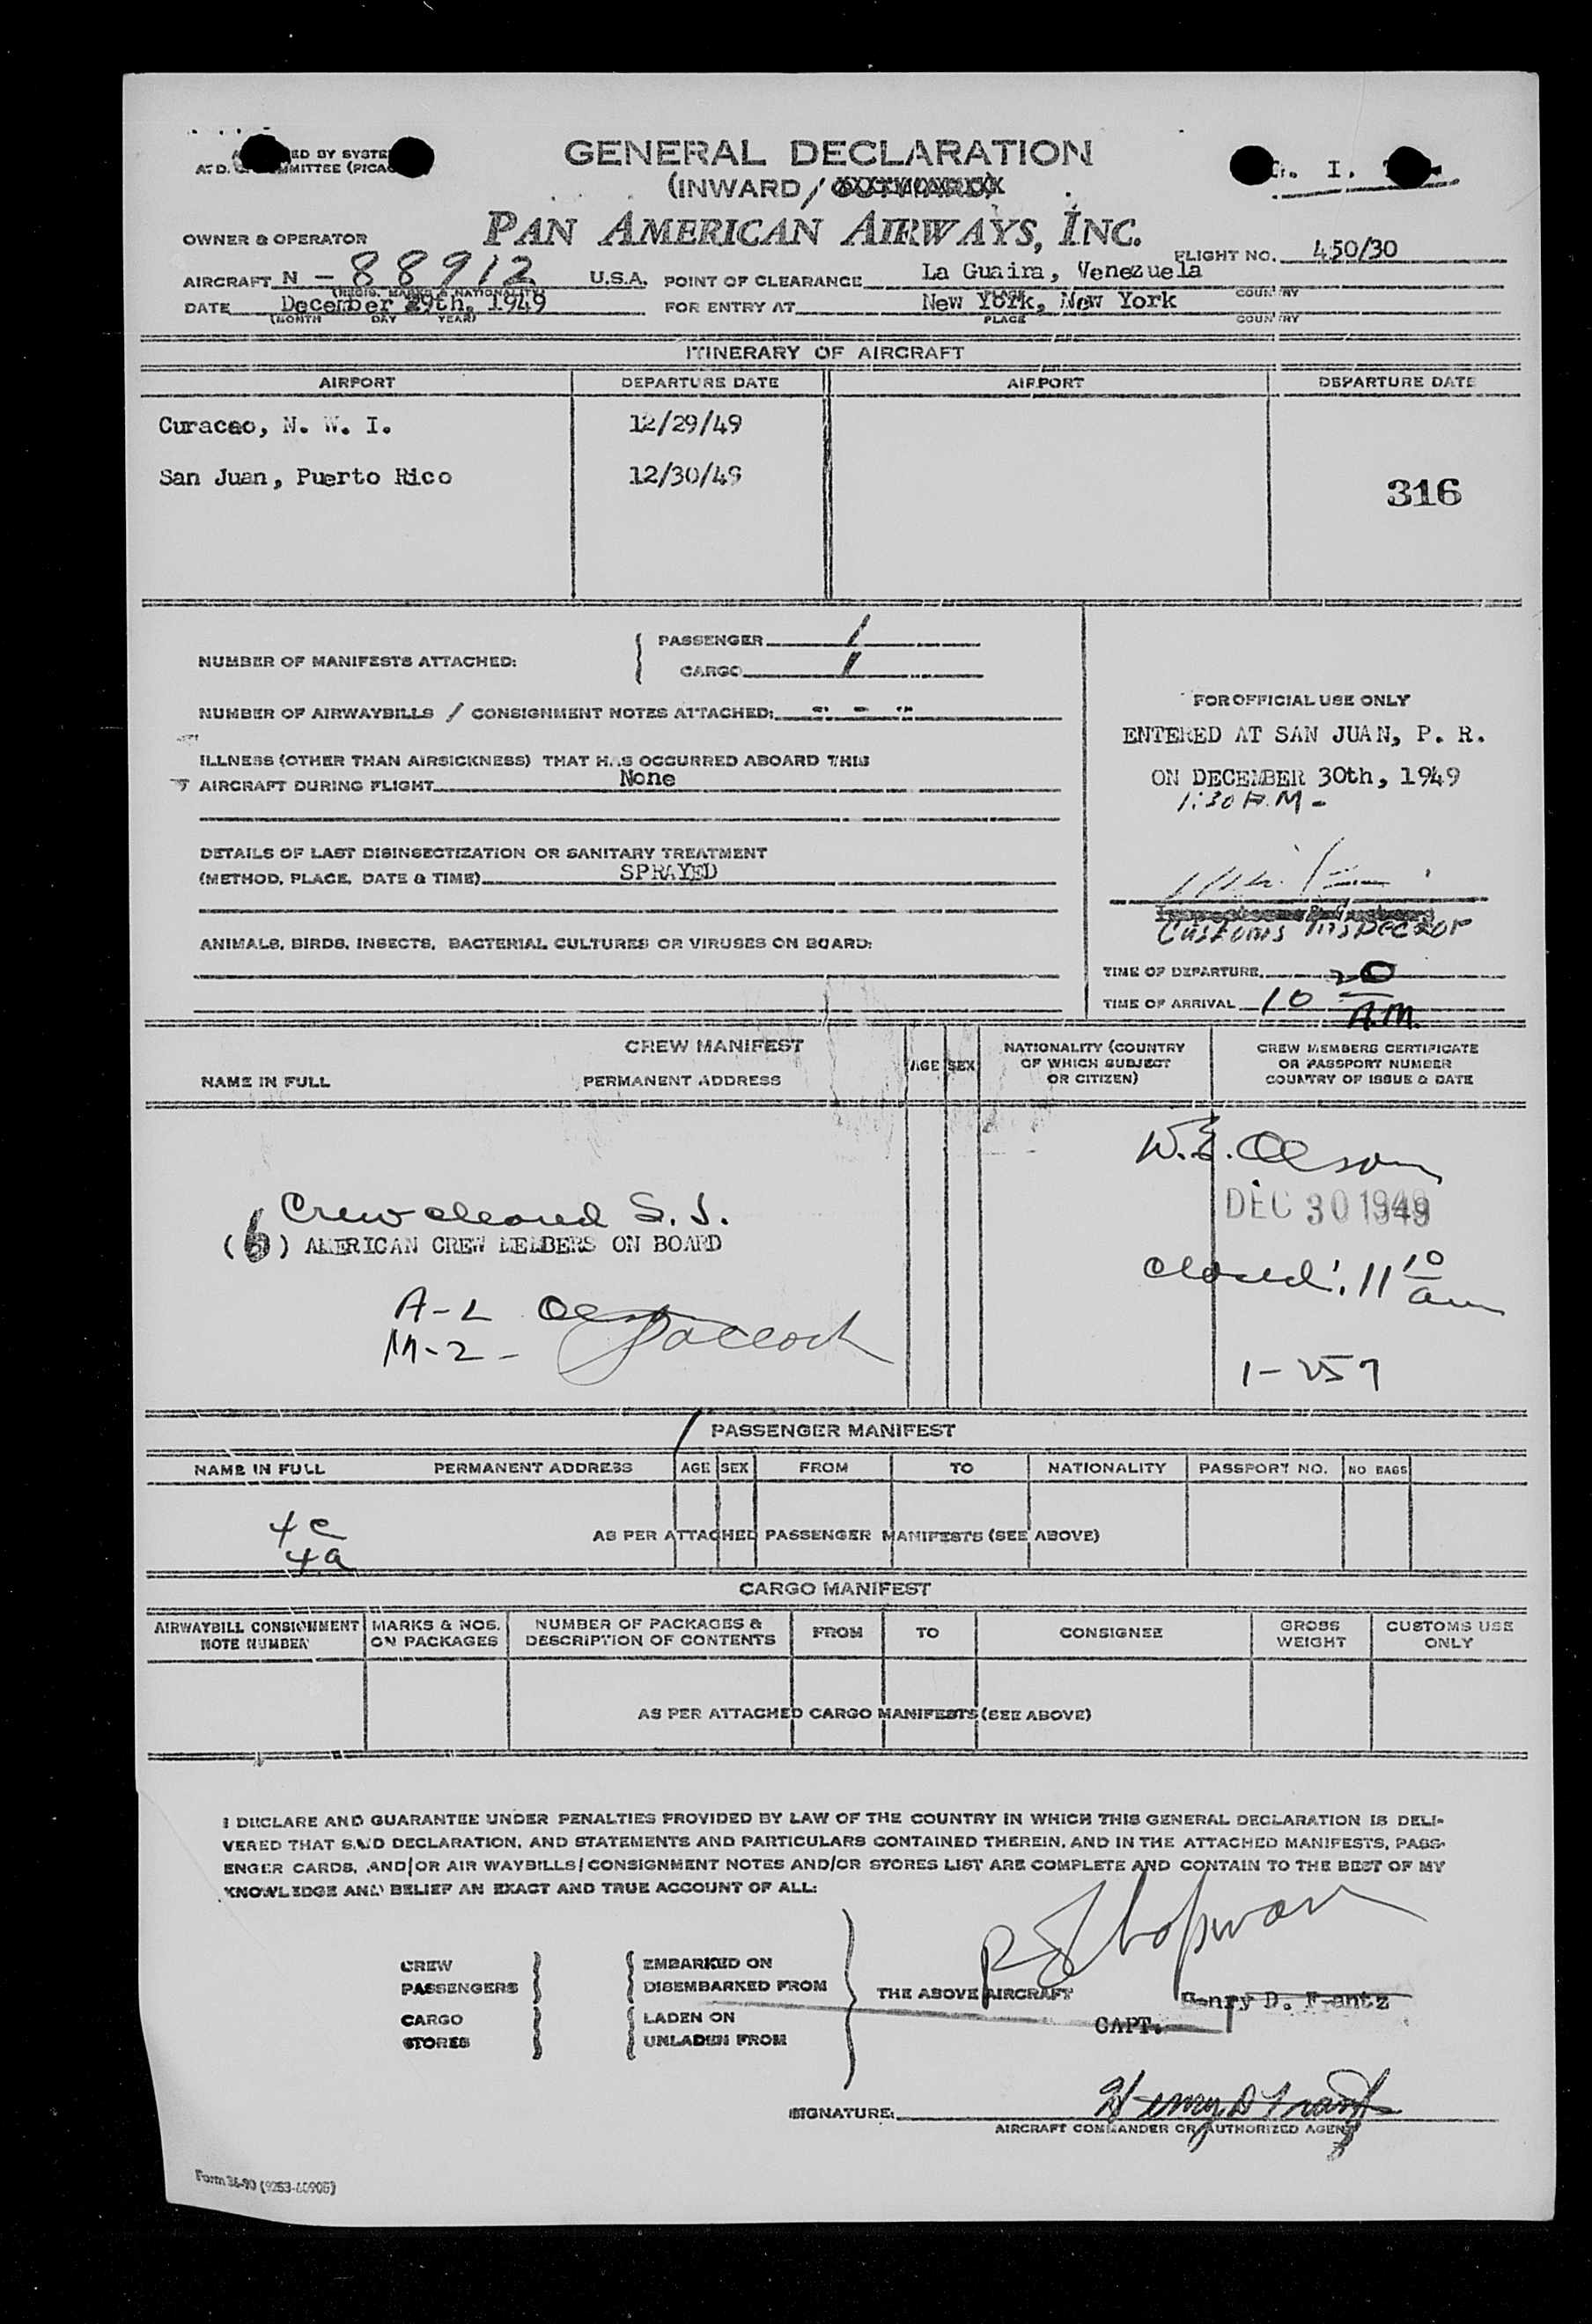 GENERAL DECLARATION
(INWARD /
PAN AMERICAN AIRWAYS, INC.
OWNER & OPERATOR
FLIGHT NO. 450/30
AIRCRAFT N - 88912 U.S.A. POINT OF CLEARANCE La Guaira, Venezuela
(REGIS. MARKS & NATIONALITY) PLACE COUNTRY
DATE December 29th, 1949 FOR ENTRY AT New York, New York
(MONTH DAY YEAR) PLACE COUNTRY
ITINERARY OF AIRCRAFT
AIRPORT DEPARTURE DATE AIRPORT DEPARTURE DATE
Curacao, N. W. I. 12/29/49
San Juan, Puerto Rico 12/30/49
316
NUMBER OF MANIFESTS ATTACHED:
PASSENGER 1
CARGO 1
NUMBER OF AIRWAYBILLS / CONSIGNMENT NOTES ATTACHED: - - -
ILLNESS (OTHER THAN AIRSICKNESS) THAT HAS OCCURRED ABOARD THIS
AIRCRAFT DURING FLIGHT None
DETAILS OF LAST DISINSECTIZATION OR SANITARY TREATMENT
(METHOD, PLACE, DATE & TIME) SPRAYED
ANIMALS, BIRDS, INSECTS, BACTERIAL CULTURES OR VIRUSES ON BOARD:
FOR OFFICIAL USE ONLY
ENTERED AT SAN JUAN, P. R.
ON DECEMBER 30th, 1949
1:30 A.M -
Customs Inspector
TIME OF DEPARTURE
TIME OF ARRIVAL 10 20 A.M.
CREW MANIFEST
NAME IN FULL PERMANENT ADDRESS AGE SEX NATIONALITY (COUNTRY OF WHICH SUBJECT OR CITIZEN) CREW MEMBERS CERTIFICATE OR PASSPORT NUMBER COUNTRY OF ISSUE & DATE
W.E. Olson
DEC 30 1949
Crew cleared S.J.
(6) AMERICAN CREW MEMBERS ON BOARD
closed: 11 10 am
A-2 Olson
M-2 -
1-257
PASSENGER MANIFEST
NAME IN FULL PERMANENT ADDRESS AGE SEX FROM TO NATIONALITY PASSPORT NO. NO BAGS
4c
4a
AS PER ATTACHED PASSENGER MANIFESTS (SEE ABOVE)
CARGO MANIFEST
AIRWAYBILL CONSIGNMENT NOTE NUMBER MARKS & NOS. ON PACKAGES NUMBER OF PACKAGES & DESCRIPTION OF CONTENTS FROM TO CONSIGNEE GROSS WEIGHT CUSTOMS USE ONLY
AS PER ATTACHED CARGO MANIFESTS (SEE ABOVE)
I DECLARE AND GUARANTEE UNDER PENALTIES PROVIDED BY LAW OF THE COUNTRY IN WHICH THIS GENERAL DECLARATION IS DELI-
VERED THAT SAID DECLARATION, AND STATEMENTS AND PARTICULARS CONTAINED THEREIN, AND IN THE ATTACHED MANIFESTS, PASS-
ENGER CARDS, AND/OR AIR WAYBILLS/CONSIGNMENT NOTES AND/OR STORES LIST ARE COMPLETE AND CONTAIN TO THE BEST OF MY
KNOWLEDGE AND BELIEF AN EXACT AND TRUE ACCOUNT OF ALL:
CREW
PASSENGERS
CARGO
STORES
EMBARKED ON
DISEMBARKED FROM
LADEN ON
UNLADEN FROM
THE ABOVE AIRCRAFT
Henry D. Frantz
CAPT.
SIGNATURE: Henry D Frantz
AIRCRAFT COMMANDER OR AUTHORIZED AGENT
Form 36-90 (9253-60905)